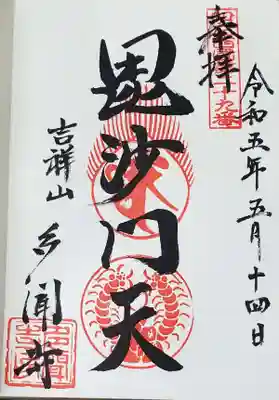 奉拝
令和五年五月十四日
毘沙门天
吉祥山
多聞寺